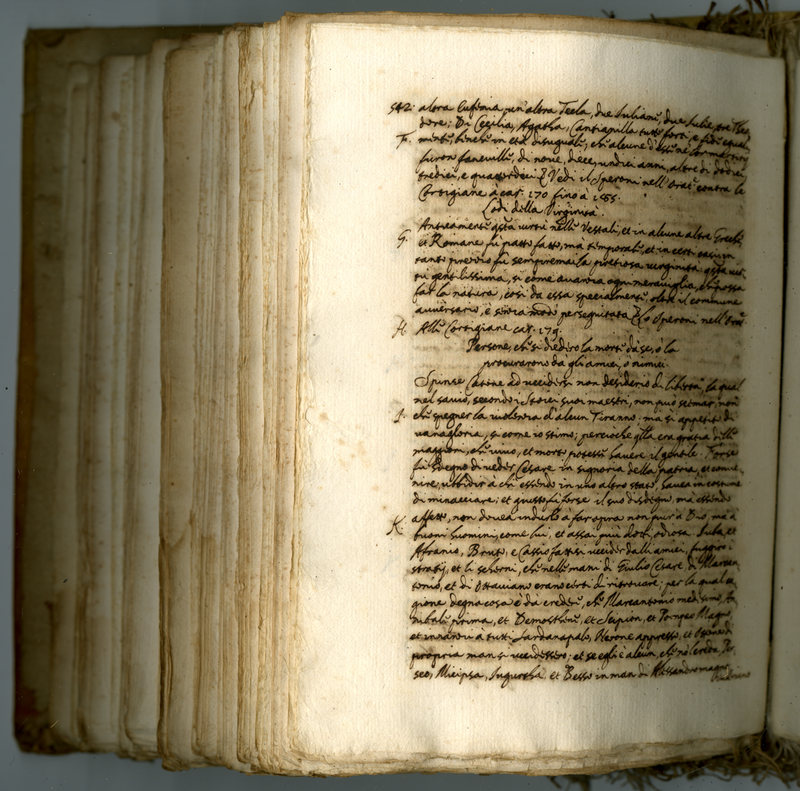 542: altra Eufemia, un'altra Tecla, due Iuliane, due Iulie, tre Theo
dore; Di Cecilia, Agatha, Cantianilla tutte forti, e fide equal
F. mente, benche in età disuguali, che alcune d'esse ne
furon fanciulle, di nove, diece, undeci anni, altre di dodeci,
tredici, e quattordeci. Vedi il Speroni nell'orat. contra le
Cortigiane à car. 170 fino à 185.
Lodi della Virginità.
G. Anticamente questa virtù nelle Vestali, et in alcune altre Greche,
et Romane fù patto fatto, ma temporale, et in certi casi in
tanto precio fù sempre mai la pretiosa verginità questa vir
tù gentilissima, si come avanza ogni meraviglia, che possa
far la natura, così da essa specialmente il commune
avversario, è senza modo perseguitata. Lo Speroni nell'Orat.
H Alle Cortigiane car. 179.
Persone, che si diedero la morte da se, o la
procurarono da gli amici, o nimici.
Spinse Catone ad uccidersi non desiderio di libertà, la qual
nel savio, secondo i Stoici suoi maestri, non può scemar, non
I. che spegner la violenza d'alcun Tiranno: ma si appetito di
vanagloria, si come io stimo; percioche quella era gratia delli
maggiori, che vivo, et morto potesse havere il gentile. Forse
fù sdegno di veder Cesare in signoria della patria, et conve
nire ubbidir à chi essendo in uno altro stato, havea in costume
di minacciare; et questo fù forse il suo disdegno, ma essendo
K. affetto, non dovea indurlo à far opra non pur à Dio, ma à
buoni huomini, come lui, et assai più dotti, odiosa. Iuba, et
Afranio, Bruto, e Cassio fattisi uccider dalli amici, fuggiro i
stratij, et li scherni, che nelle mani di Giulio Cesare di Marcan
tonio, et di Ottaviano erano certi di ritrovare; per la qual ca
gione degna cosa è da creder, che Marcantonio medesimo, An
nibale prima, et Demosthene, et Scipion, et Pompeo Magno
et innanzi a tutti Sardanapalo, Nerone appresso, et
propria man si uccidessero; et se egli è alcun, che no'l creda, Per
seo, Micipsa, Iugurtha, et Besso in man di Alessandro magno